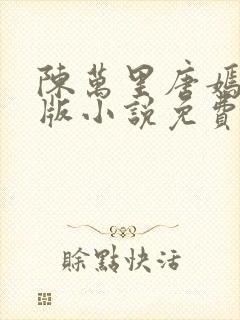 陳萬里唐嫣
版小說免費
賒點快活